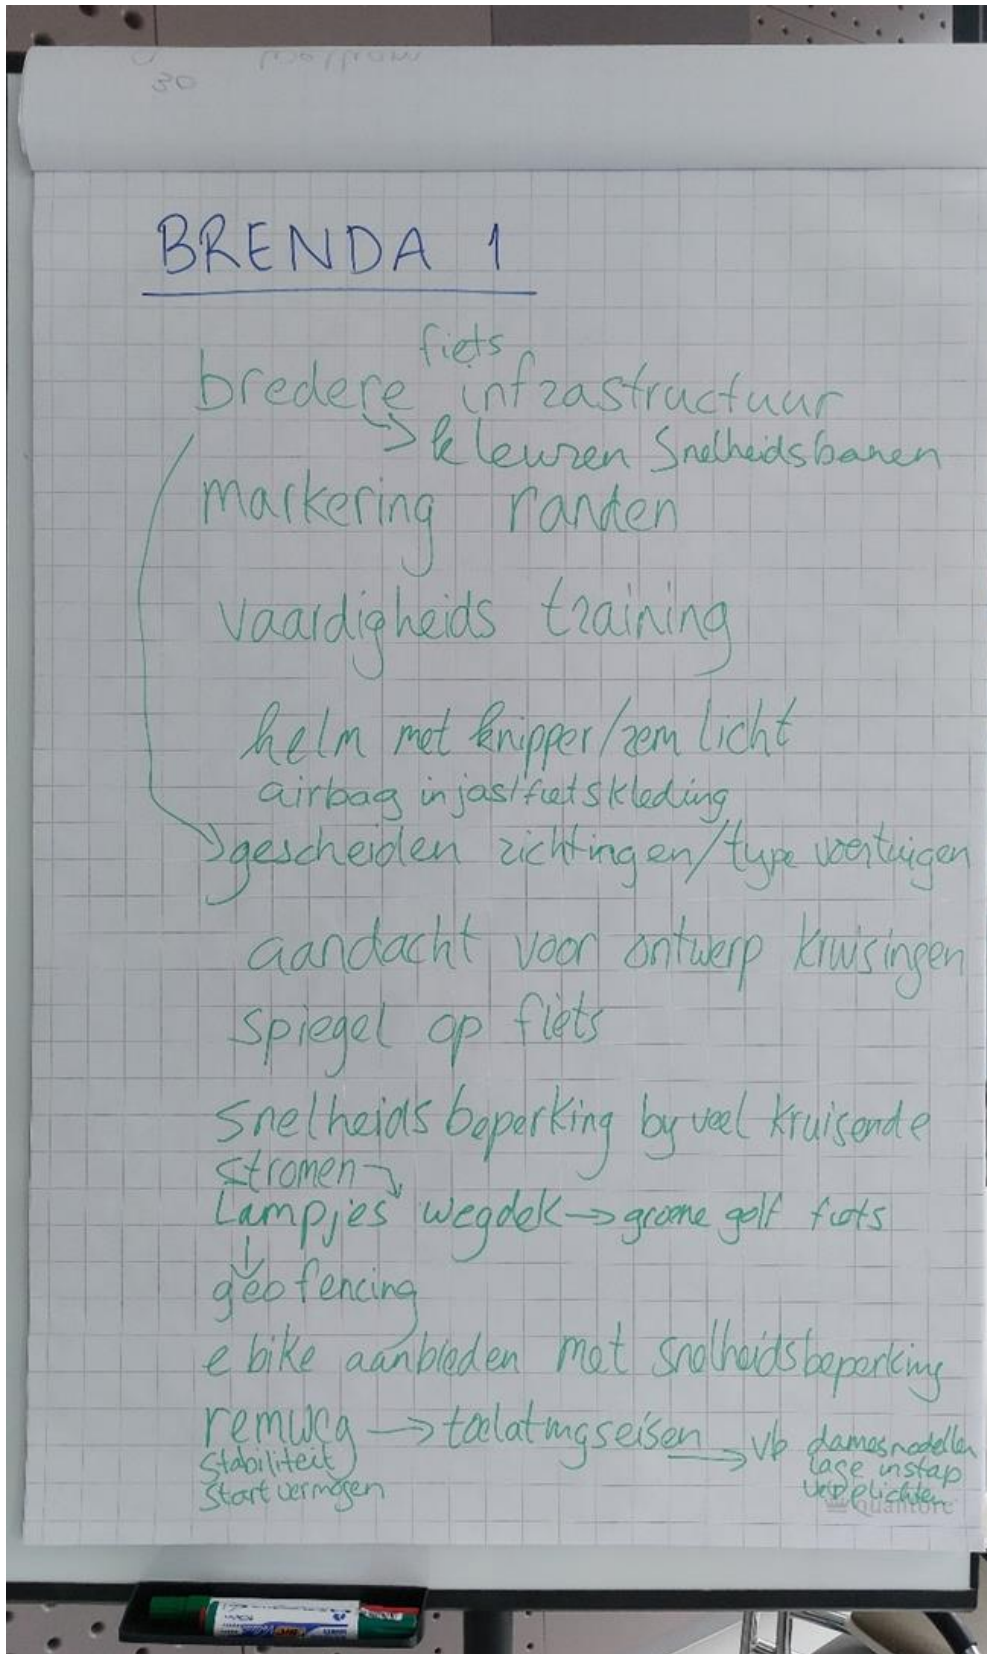 30
BRENDA 1
fiets
bredere infrastructuur
→ kleuren Snelheidsbanen
markering randen
vaardigheids training
helm met knipper/rem licht
airbag in jas/fietskleding
→ gescheiden richtingen/type voertuigen
aandacht voor ontwerp kruisingen
spiegel op fiets
snelheids beperking by veel kruisende
stromen →
Lampjes wegdek → groene golf fiets
↓
geo fencing
e bike aanbieden met snelheidsbeperking
remweg → toelatingseisen → vb damesmodellen
stabiliteit lage instap
startvermogen verplichten
Quantore